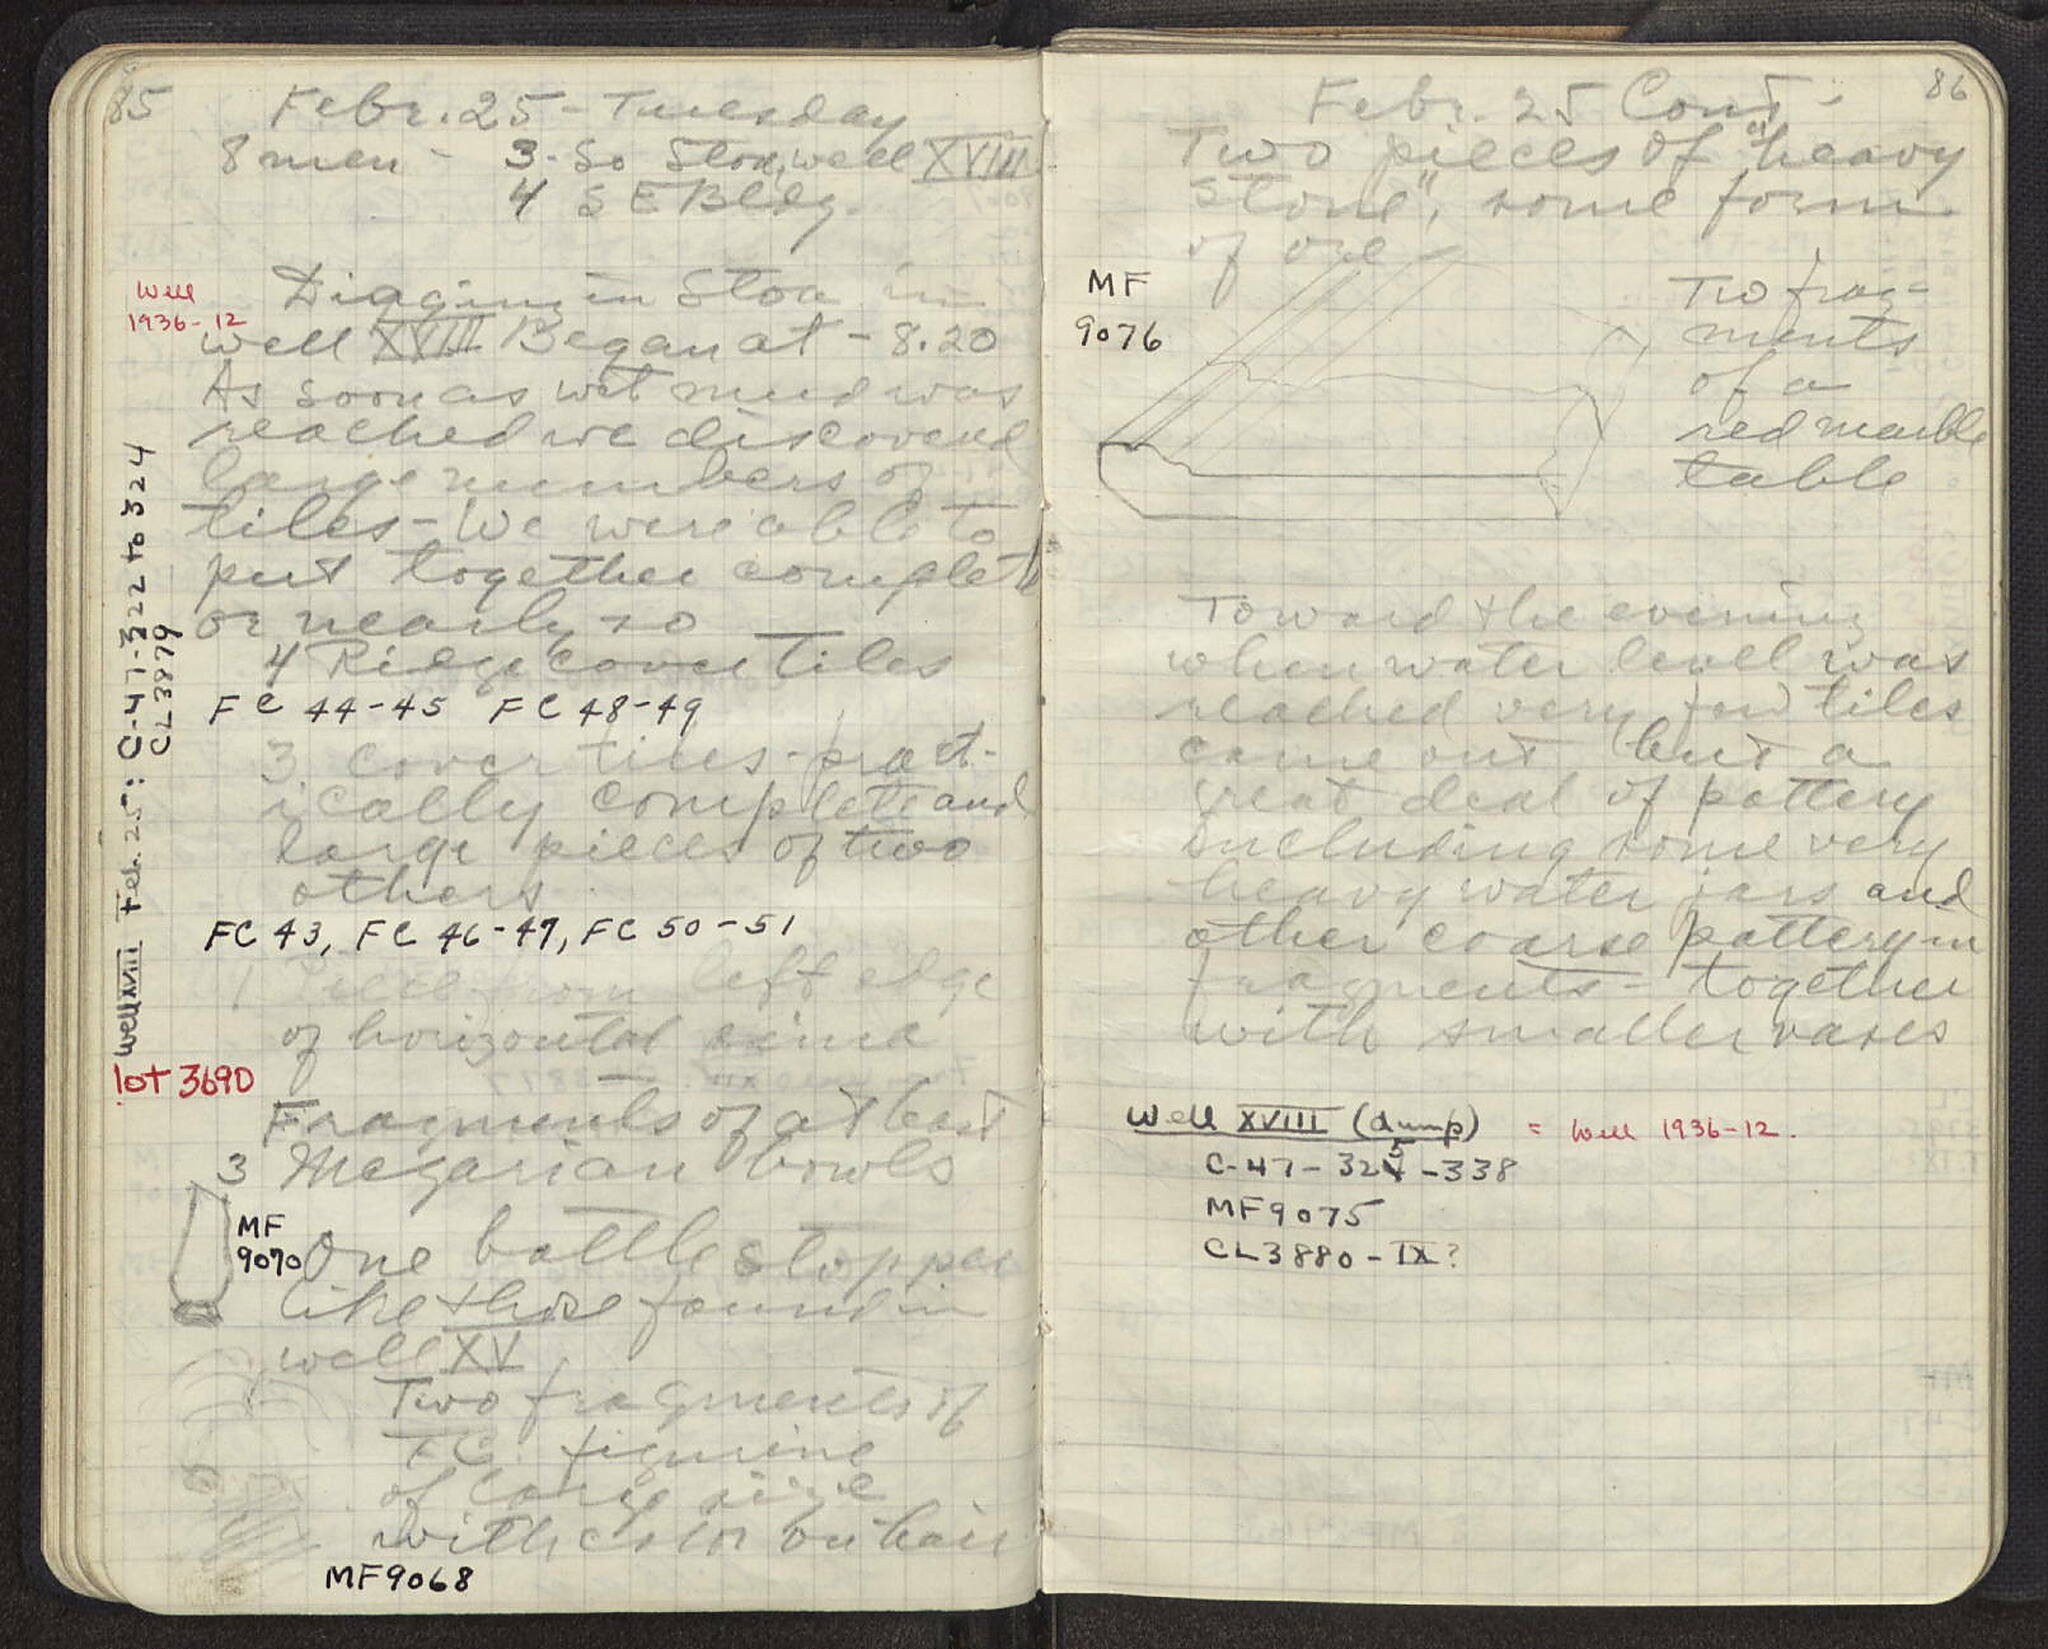 85
Febr. 25 - Tuesday
8 men - 3 - So Stoa, well XVIII
4 S E Bldg.
Well
1936-12
Digging in Stoa in
well XVIII Began at - 8.20
As soon as wet mud was
reached we discovered
large numbers of
tiles - We were able to
put together complete
or nearly so
4 Ridge cover tiles
FC 44-45 FC 48-49
3 cover tiles - pract-
ically complete and
large pieces of two
others.
FC 43, FC 46-47, FC 50-51
1 Piece from left edge
of horizontal sima
Well XVIII Feb. 25: C-47-322 to 324
CL 3879
lot 3690
Fragments of at least
3 Megarian bowls
MF
9070
One bottle stopper
like those found in
well XV
Two fragments of
TC. figurine
of large size
with color on hair
MF9068
86
Febr. 25 Cont-
Two pieces of "heavy
stone", some form
of ore
MF
9076
Two frag-
ments
of a
red marble
table
Toward the evening
when water level was
reached very few tiles
came out but a
great deal of pottery
including some very
heavy water jars and
other coarse pottery in
fragments - together
with smaller vases
Well XVIII (dump) = Well 1936-12.
C-47-325-338
MF9075
CL3880-IX?